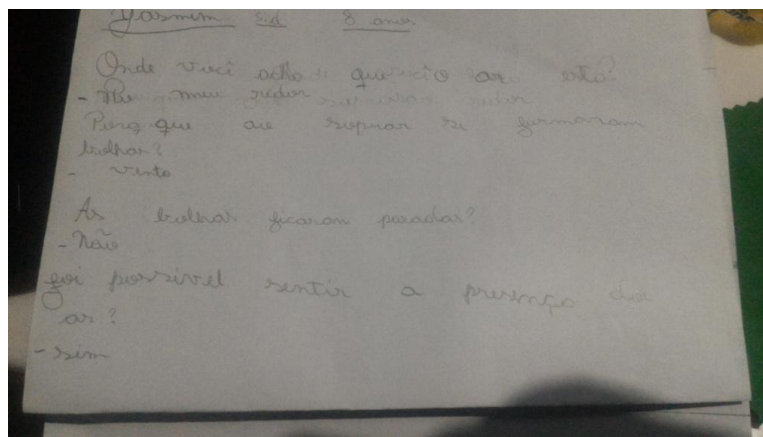 Yasmim 8 anos
Onde você acha que o ar está?
- No meu redor
Porque ao soprar se formaram
bolhas?
- vento
As bolhas ficaram paradas?
- Não
foi possivel sentir a presença do
ar?
- sim